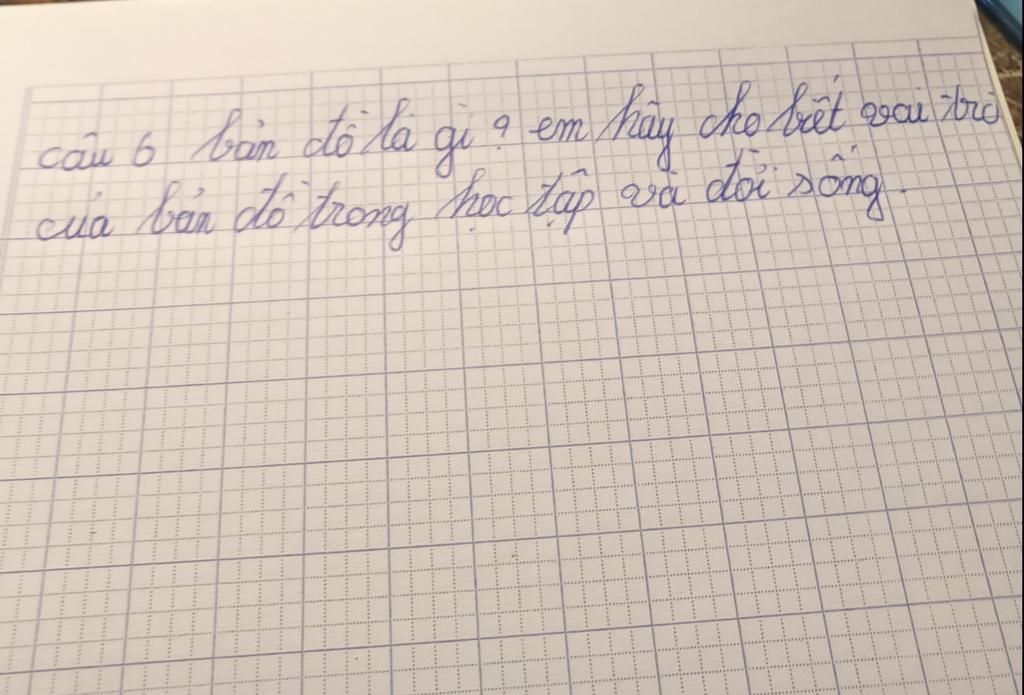 câu 6 bản đồ là gì ? em hãy cho biết vai trò
của bản đồ trong học tập và đời sống.